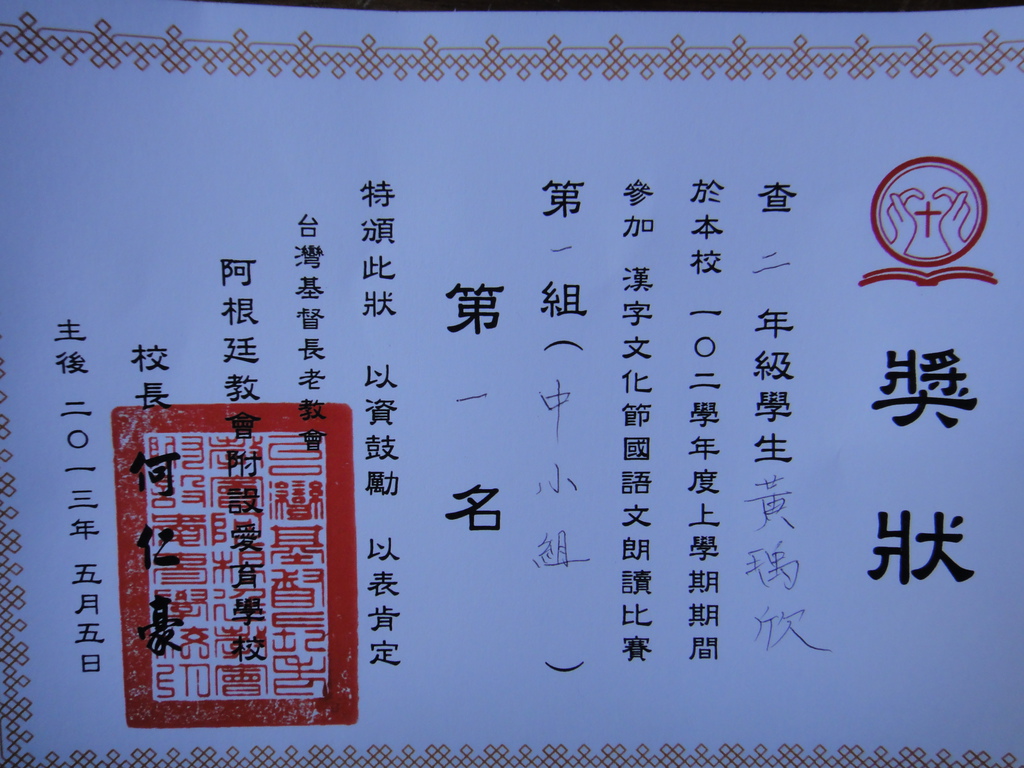 獎狀
查二年級學生黃瑀欣
於本校 一〇二學年度上學期期間
參加 漢字文化節國語文朗讀比賽
第一組(中小組)
第一名
特頒此狀 以資鼓勵 以表肯定
台灣基督長老教會
阿根廷教會附設愛育學校
校長 何仁豪
主後 二〇一三年 五月五日